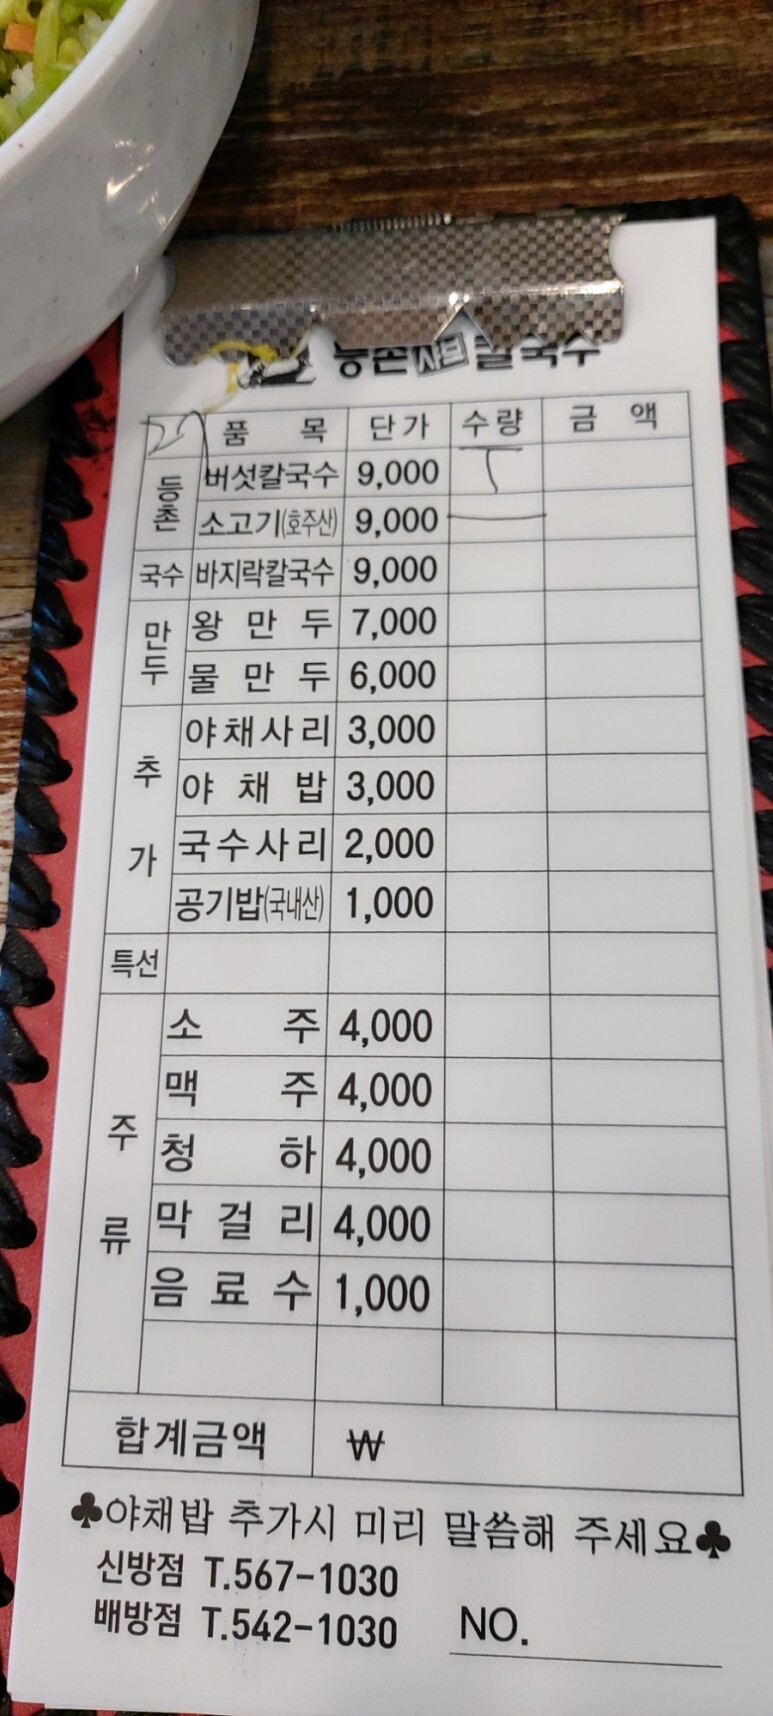 등촌샤브칼국수
품 목 단가 수량 금 액
등촌 버섯칼국수 9,000
소고기(호주산) 9,000
국수 바지락칼국수 9,000
만두 왕만두 7,000
물만두 6,000
추가 야채사리 3,000
야채밥 3,000
국수사리 2,000
공기밥(국내산) 1,000
특선
주류 소주 4,000
맥주 4,000
청하 4,000
막걸리 4,000
음료수 1,000
합계금액 ₩
♣야채밥 추가시 미리 말씀해 주세요♣
신방점 T.567-1030
배방점 T.542-1030 NO.